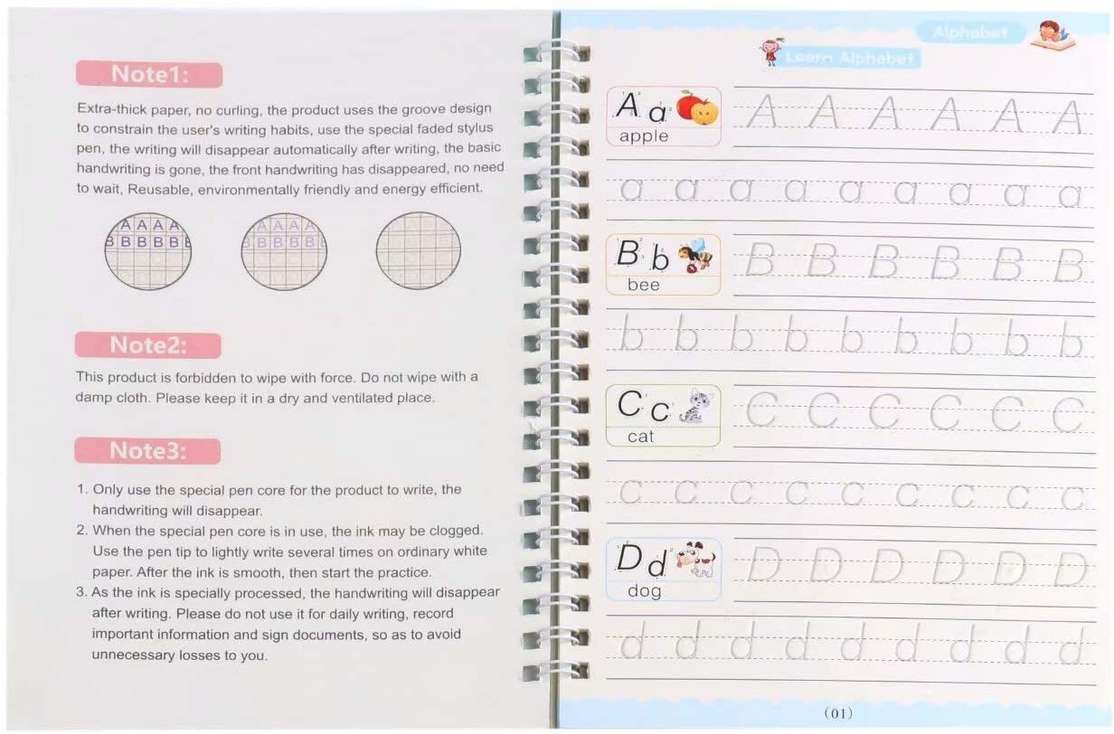 Note1:
Extra-thick paper, no curling, the product uses the groove design
to constrain the user's writing habits, use the special faded stylus
pen, the writing will disappear automatically after writing, the basic
handwriting is gone, the front handwriting has disappeared, no need
to wait, Reusable, environmentally friendly and energy efficient.
A A A A
B B B B B B
A A A A
B B B B B B
Note2:
This product is forbidden to wipe with force. Do not wipe with a
damp cloth. Please keep it in a dry and ventilated place.
Note3:
1. Only use the special pen core for the product to write, the
handwriting will disappear.
2. When the special pen core is in use, the ink may be clogged.
Use the pen tip to lightly write several times on ordinary white
paper. After the ink is smooth, then start the practice.
3. As the ink is specially processed, the handwriting will disappear
after writing. Please do not use it for daily writing, record
important information and sign documents, so as to avoid
unnecessary losses to you.
Alphabet
Learn Alphabet
A a
apple
A A A A A A
a a a a a a a a a
B b
bee
B B B B B B
b b b b b b b b b
C c
cat
C C C C C C
c c c c c c c c c
D d
dog
D D D D D D
d d d d d d d d d
(01)